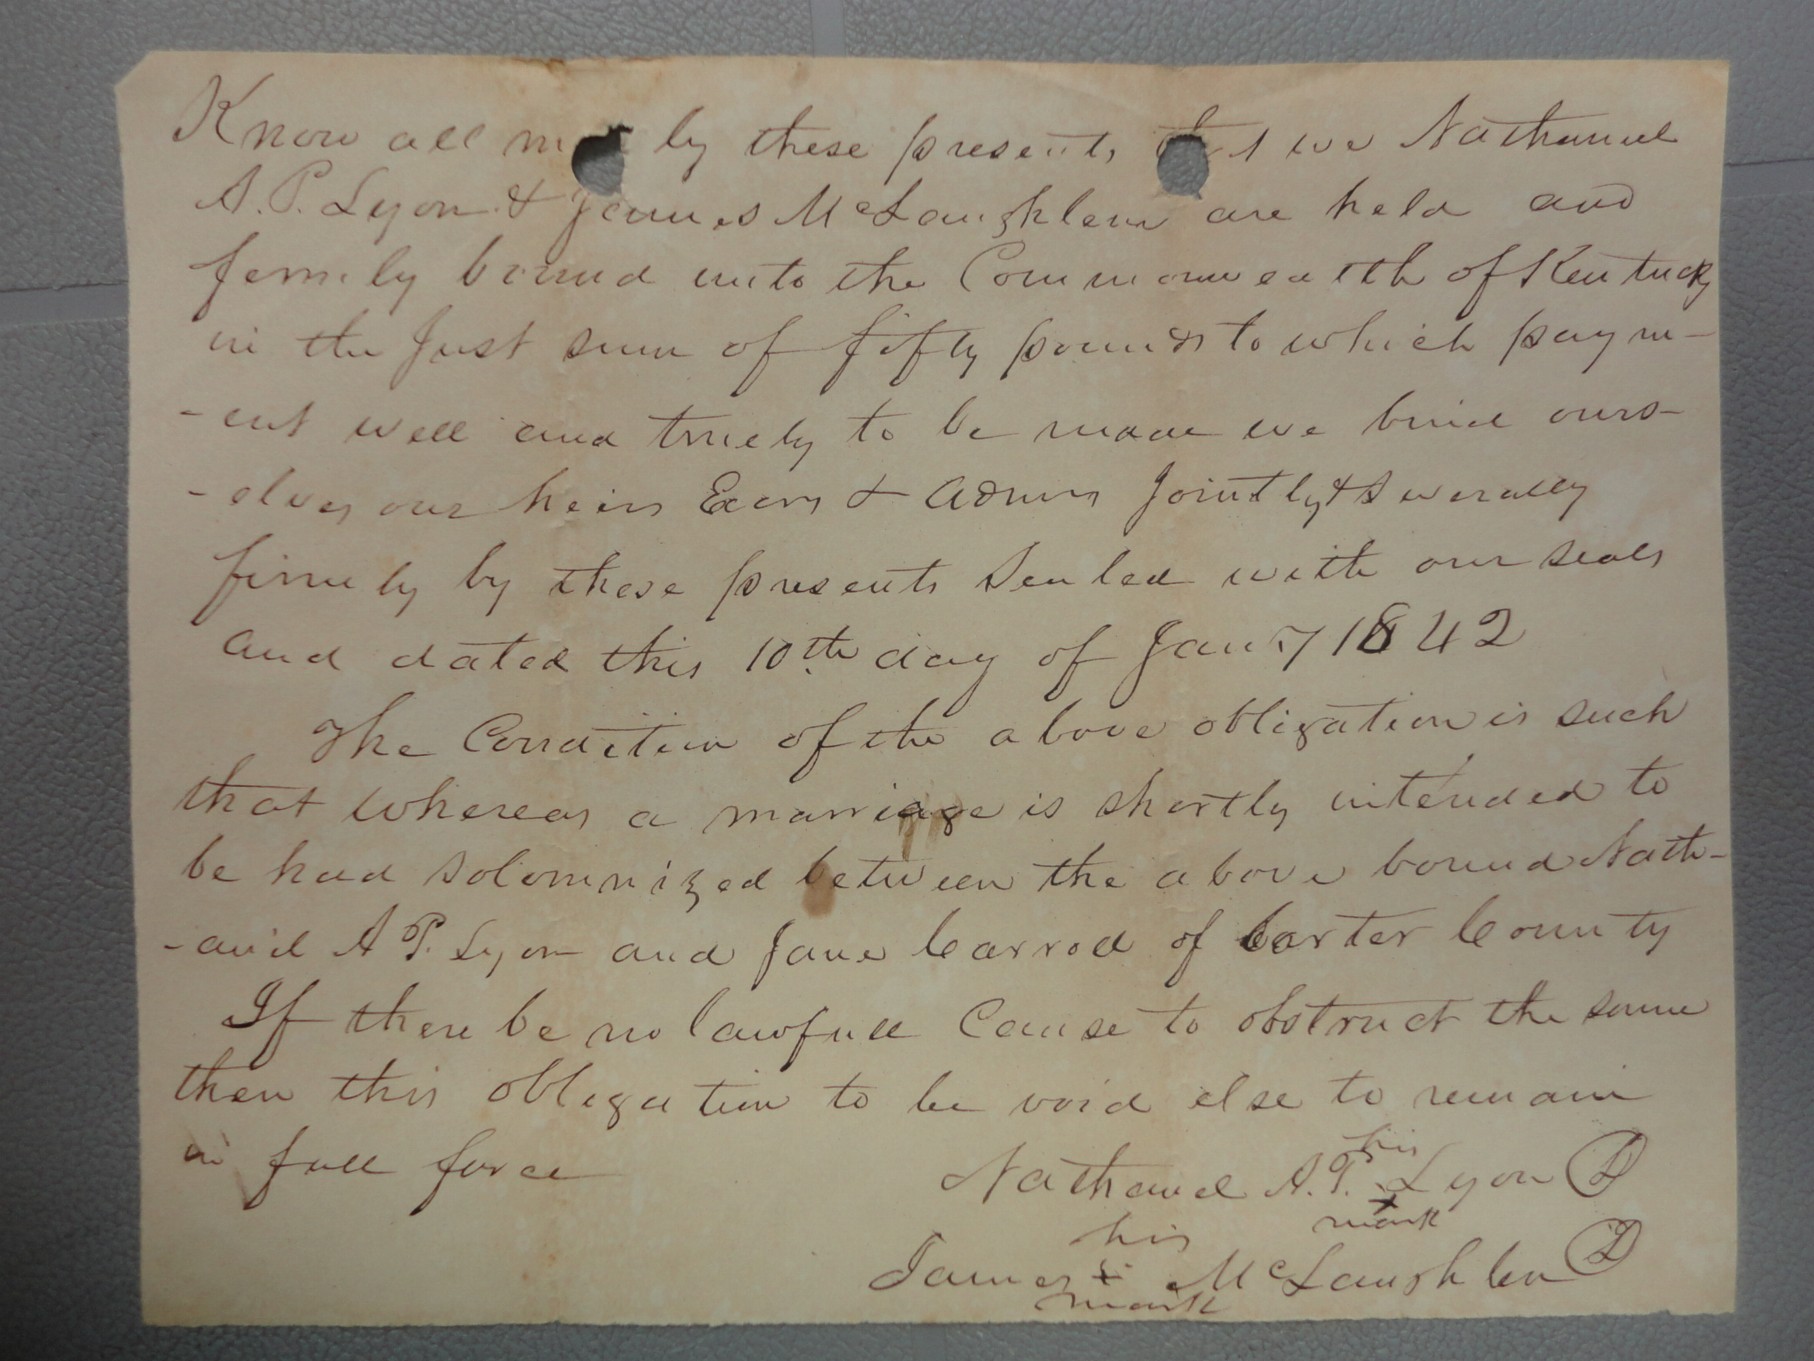 Know all m by these presents that we Nathaniel
A. P. Lyon & James McLaughlen are held and
fermly bound unto the Commonwealth of Kentucky
in the Just sum of fifty pounds to which paym-
-ent well and truely to be made we bind ours-
-elves our heirs Exors & Admrs Jointly & Severally
firmly by these presents Sealed with our seals
and dated this 10th day of Jany 1842
The Condition of the above obligation is such
that whereas a marriage is shortly intended to
be had Solomnized between the above bound Nath-
-aniel A P. Lyon and Jane Carrod of Carter County
If there be no lawfull Cause to obstruct the same
then this obligation to be void else to remain
in full force
his
Nathaniel A. P. x Lyon
mark
his
James x McLaughlen
mark